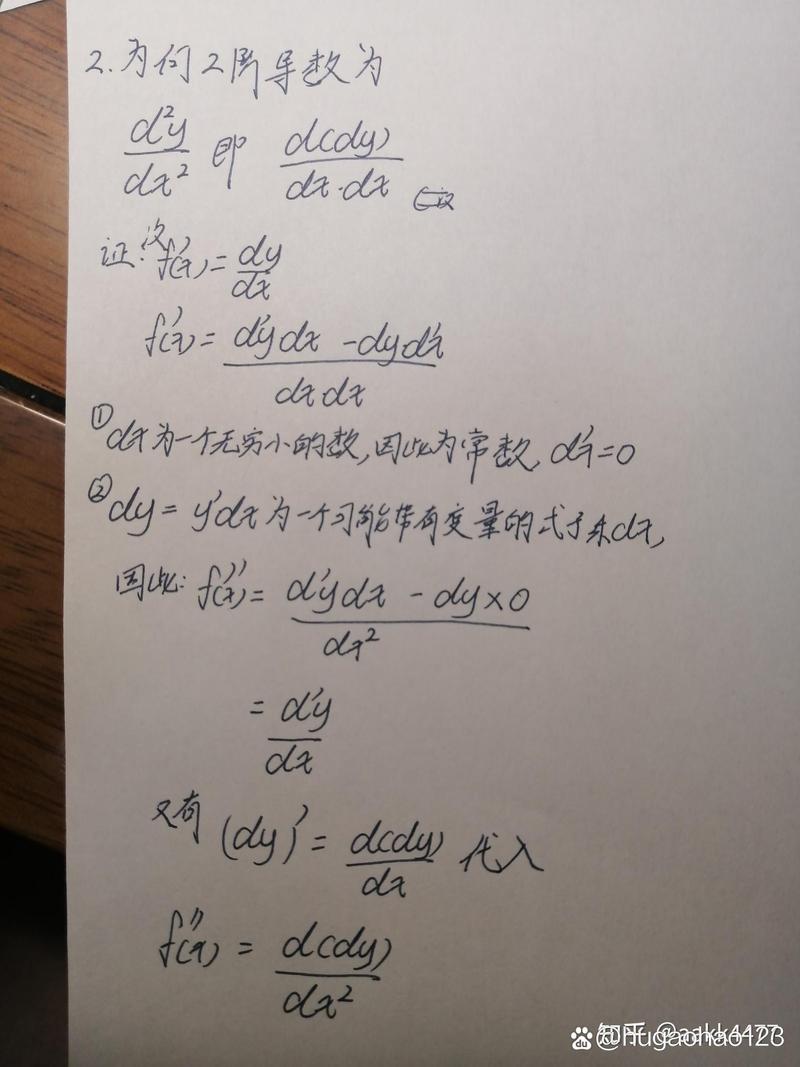 2. 为何2阶导数为
d²y/dx² 即 d(dy)/dx·dx
证: 设 f'(x) = dy/dx
f'(x) = d'y dx - dy d'x / dx dx
① dx为一个无穷小的数,因此为常数, d'x=0
② dy = y'dx 为一个可能带有变量的式子乘dx,
因此: f''(x) = d'y dx - dy×0 / dx²
= d'y/dx
又有 (dy)' = d(dy)/dx 代入
f''(x) = d(dy)/dx²
知乎 @aakk4477
@hugaohao123